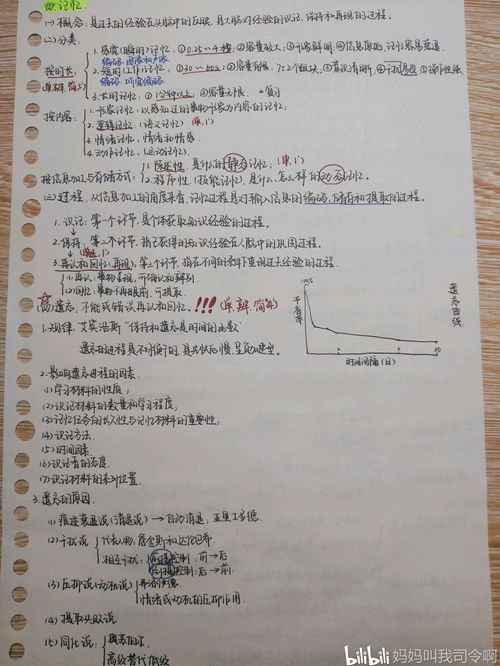 四 记忆
(一) 概念: 是过去的经验在头脑中的反映, 是大脑对经验的识记、保持和再现的过程.
(二) 分类:
按时长 (单, 辨, 简)
1. 感觉(瞬时)记忆: ①0.25~4秒, ②容量较大, ③形象鲜明, ④信息原始, 记忆容易衰退.
编码: 图像和声像
2. 短时(工作)记忆: ①30~60s; ②容量有限, 7±2个组块, ③意识清晰, ④干扰易忘
编码: 听觉编码
3. 长时记忆: ①1分钟以上 ②容量无限.
按内容:
1. 形象记忆: 以感知过的事物形象为内容的记忆.
2. 逻辑记忆: (语义记忆) (单, )
3. 情绪记忆: 情绪和情感.
4. 动作记忆: (运动记忆).
按信息加工与存储方式:
1. 陈述性: 是什么的静态记忆, (单, )
2. 程序性, (技能记忆), 是什么、怎么样的动态记忆.
(三) 过程: 从信息加工的角度来看, 记忆过程是对输入信息的编码、储存和提取的过程.
1. 识记: 第一个环节, 是个体获取知识经验的过程.
2. 保持, 第二个环节, 指已获得的知识经验在人脑中的巩固过程.
3. 再认和回忆(再现), 第三个环节, 指在不同的条件下重现过去经验的过程.
(1) 再认: 事物呈现, 可确认和辨别
(2) 回忆: 事物不再眼前, 可提取.
(四) 遗忘, 不能或错误再认和回忆. !!! (单, 辨, 简)
1. 规律: 艾宾浩斯 "保持和遗忘是时间的函数"
遗忘的进程是不均衡的, 是先快后慢, 呈负加速型.
遗忘曲线
时间间隔 (日)
2. 影响遗忘进程的因素.
(1) 学习材料的性质;
(2) 识记材料的数量和学习程度;
(3) 记忆任务的长久性与记忆材料的重要性;
(4) 识记方法.
(5) 时间因素
(6) 识记者的态度.
(7) 识记材料的系列位置.
3. 遗忘的原因.
(1) 痕迹衰退说 (消退说) → 自动消退, 亚里士多德.
(2) 干扰说
代表人物: 詹金斯和达伦巴希
相互干扰: 前摄抑制: 前→后
后摄抑制: 后→前.
(3) 压抑说 (动机说)
弗洛伊德.
情绪或动机的压抑作用
(4) 提取失败说
(5) 同化说:
奥苏伯尔
高级替代低级
bilibili 妈妈叫我司令啊